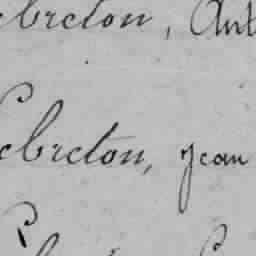 ebreton, Ant
Lebreton, Jean